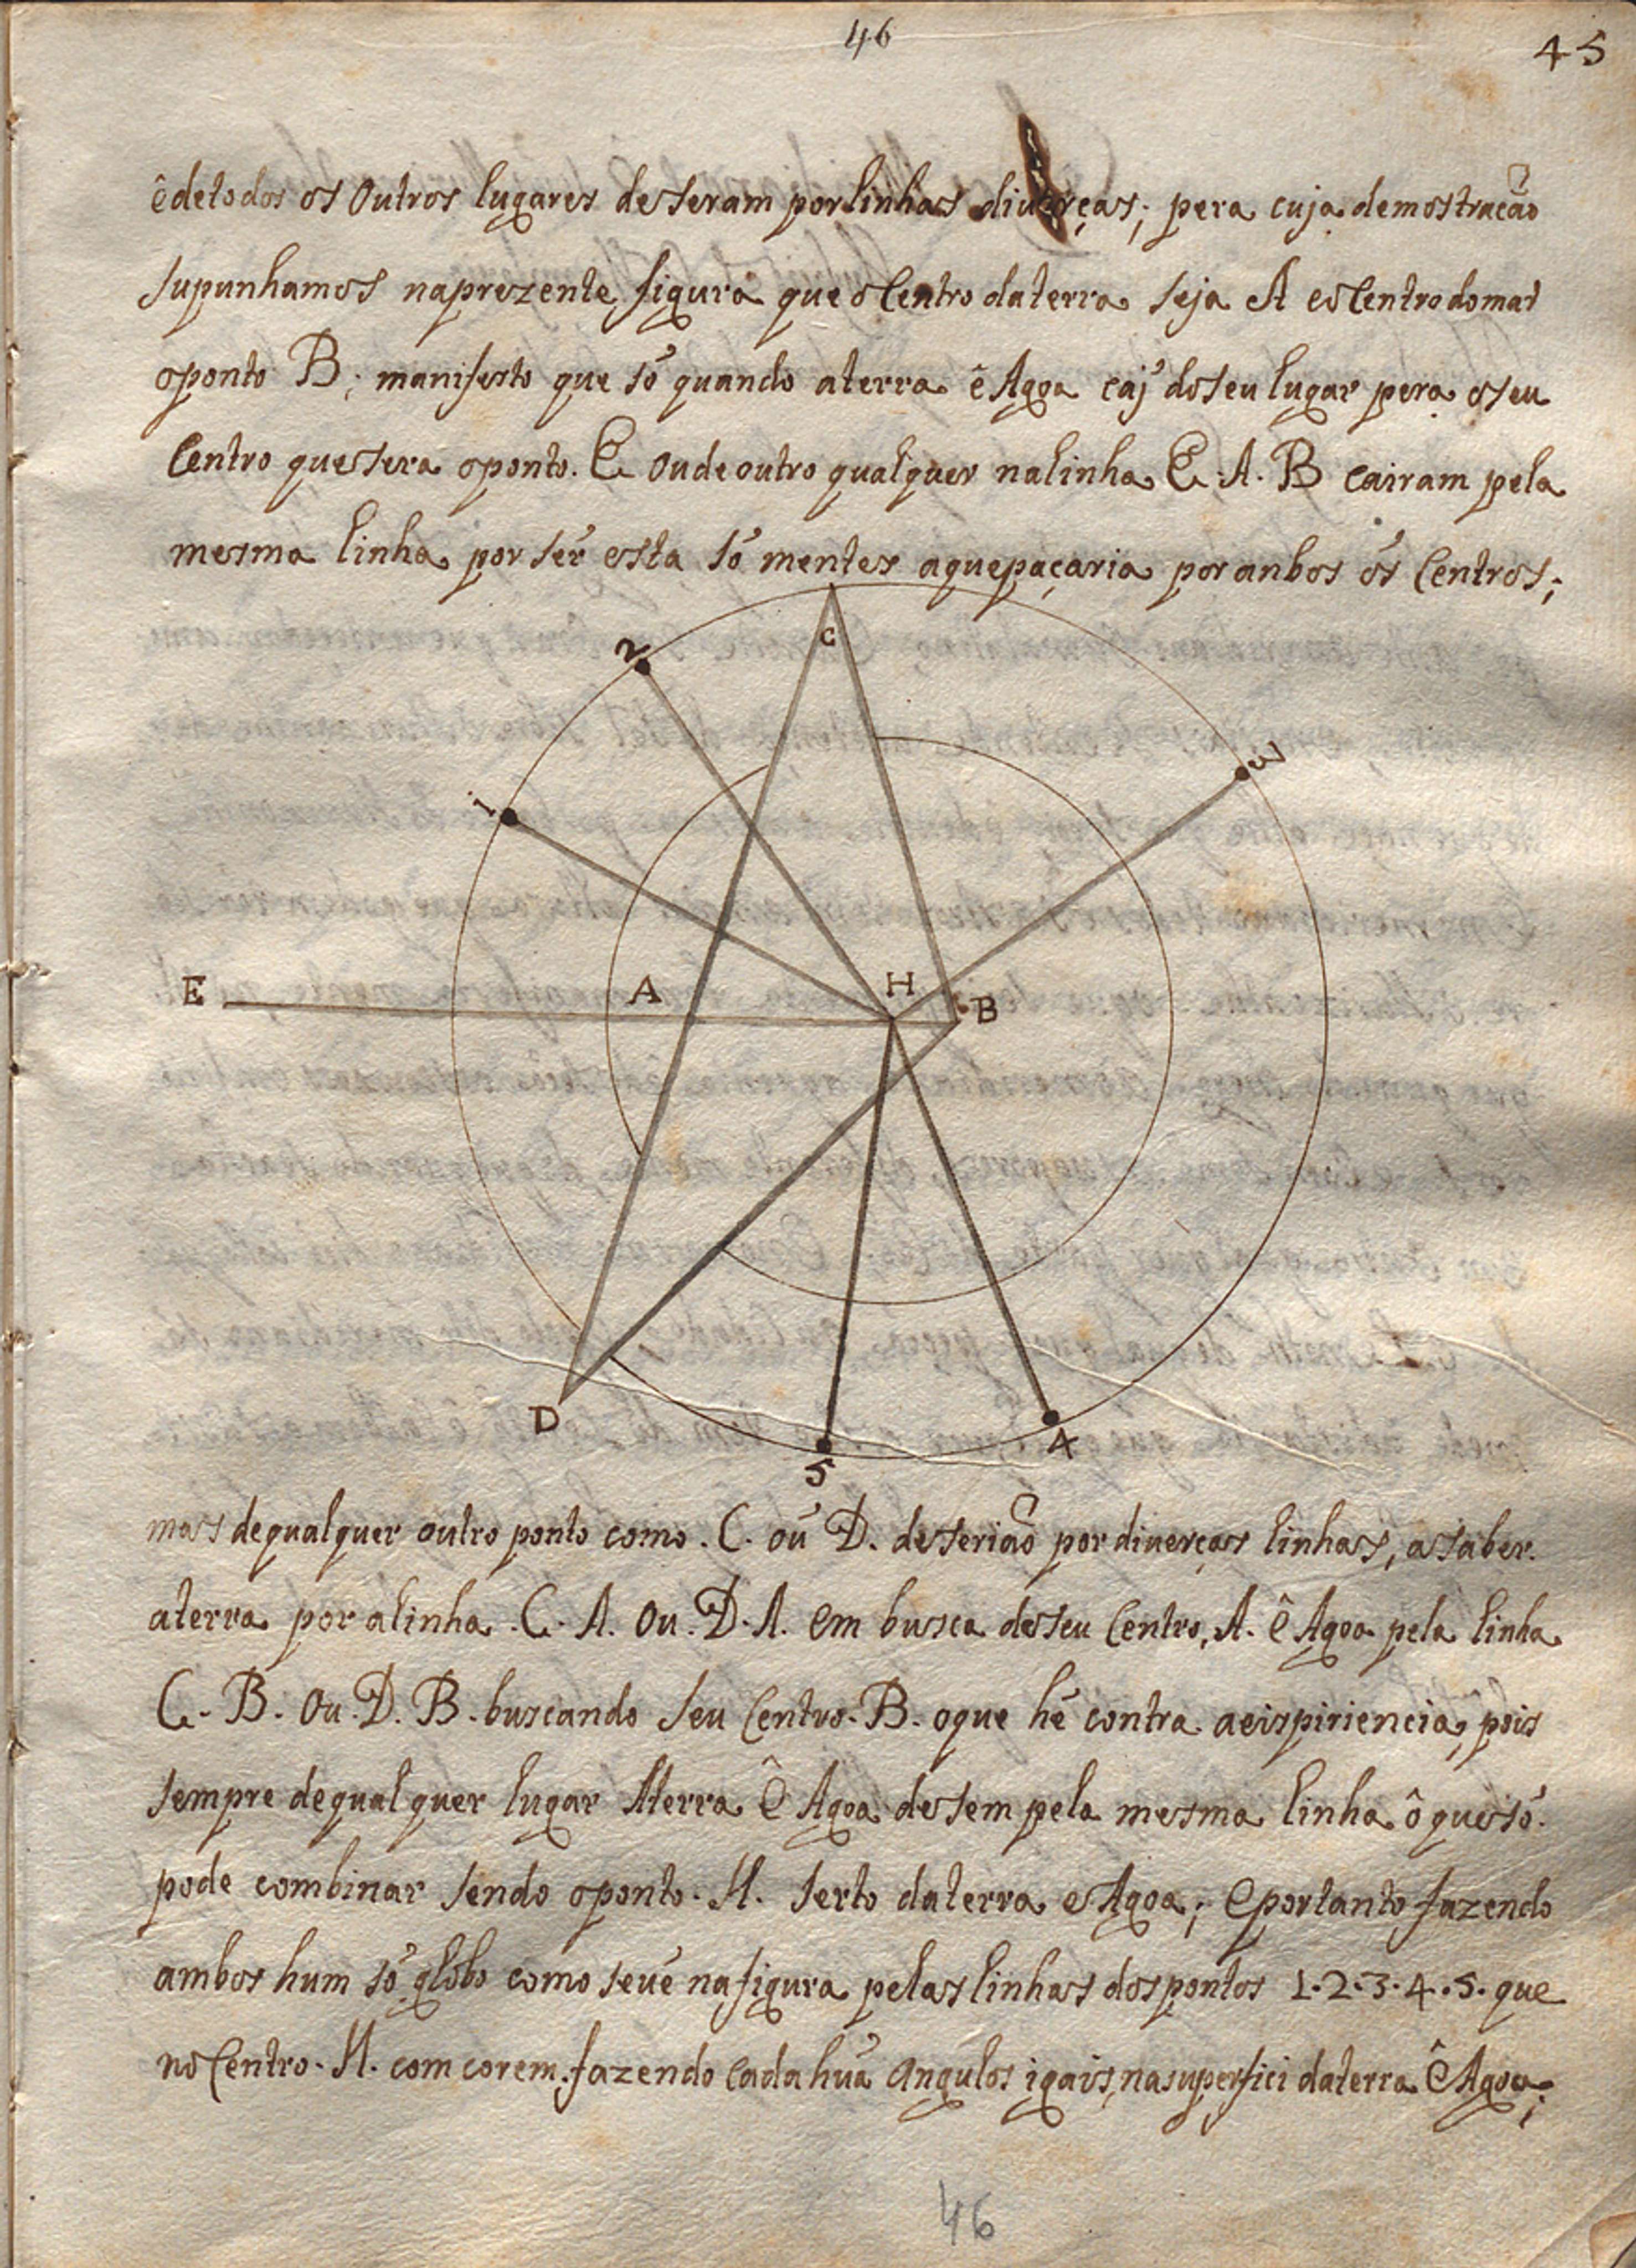 46
45
ê detodos os outros lugares desseram por linhas diuerças; pera cuja demostracaõ
supunhamos naprezente figura que o Centro daterra seja A eo Centro domar
oponto B; manifesto que só quando aterra ê Agoa caj do seu lugar pera o seu
Centro que sera oponto. E ou de outro qualquer nalinha E. A. B cairam pela
mesma linha por sér esta só mentes aquepaçaria por anbos ós Centros;
C
2
3
1
E
A
H
B
D
5
4
mas dequalquer outro ponto como . C. oú D. desseriaõ por diuerças linhas, a saber.
aterra por alinha . C. A. ou . D. A. em busca de seu Centro, A. ê Agoa pela linha
C. B. ou . D. B. buscando seu Centro. B. oque hé contra aeispiriencia, pois
sempre dequal quer lugar Aterra ê Agoa dessem pela mesma linha ô que só.
pode combinar sendo oponto. H. serto daterra e Agoa; e portanto fazendo
ambos hum só glóbo como seué na figura pelas linhas dos pontos 1. 2. 3. 4. 5. que
no Centro. H. com corem. fazendo cada huã angúlos igais, na superfici daterra ê Agoa;
46